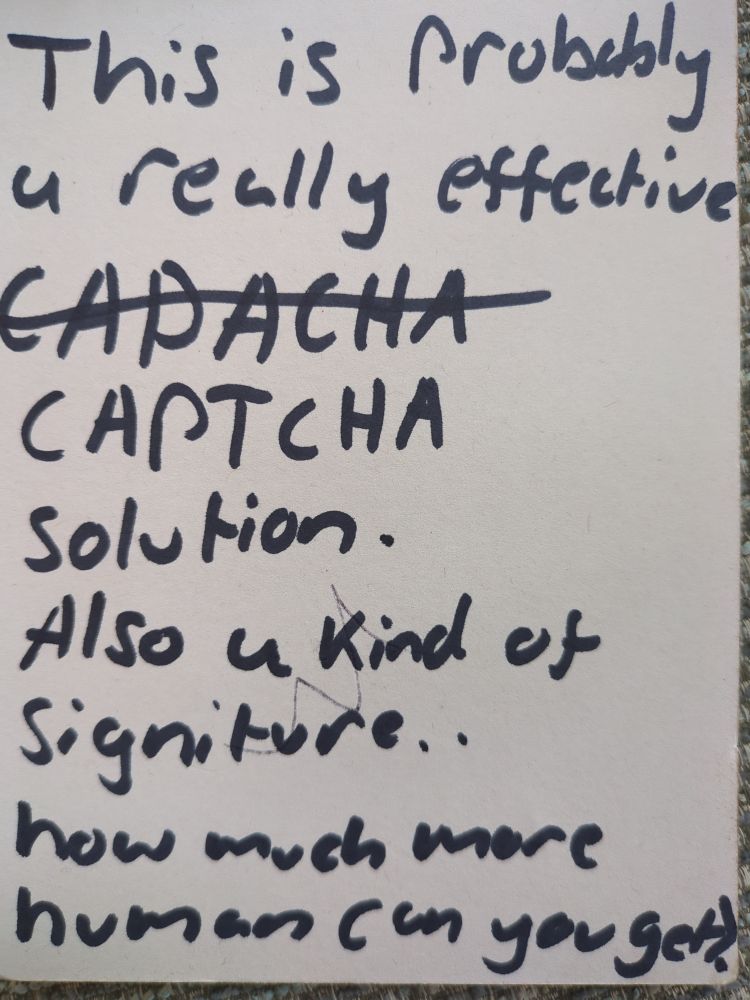 This is Probably
a really effective
CAPACHA
CAPTCHA
solution.
Also a kind of
signiture..
how much more
human can you get?